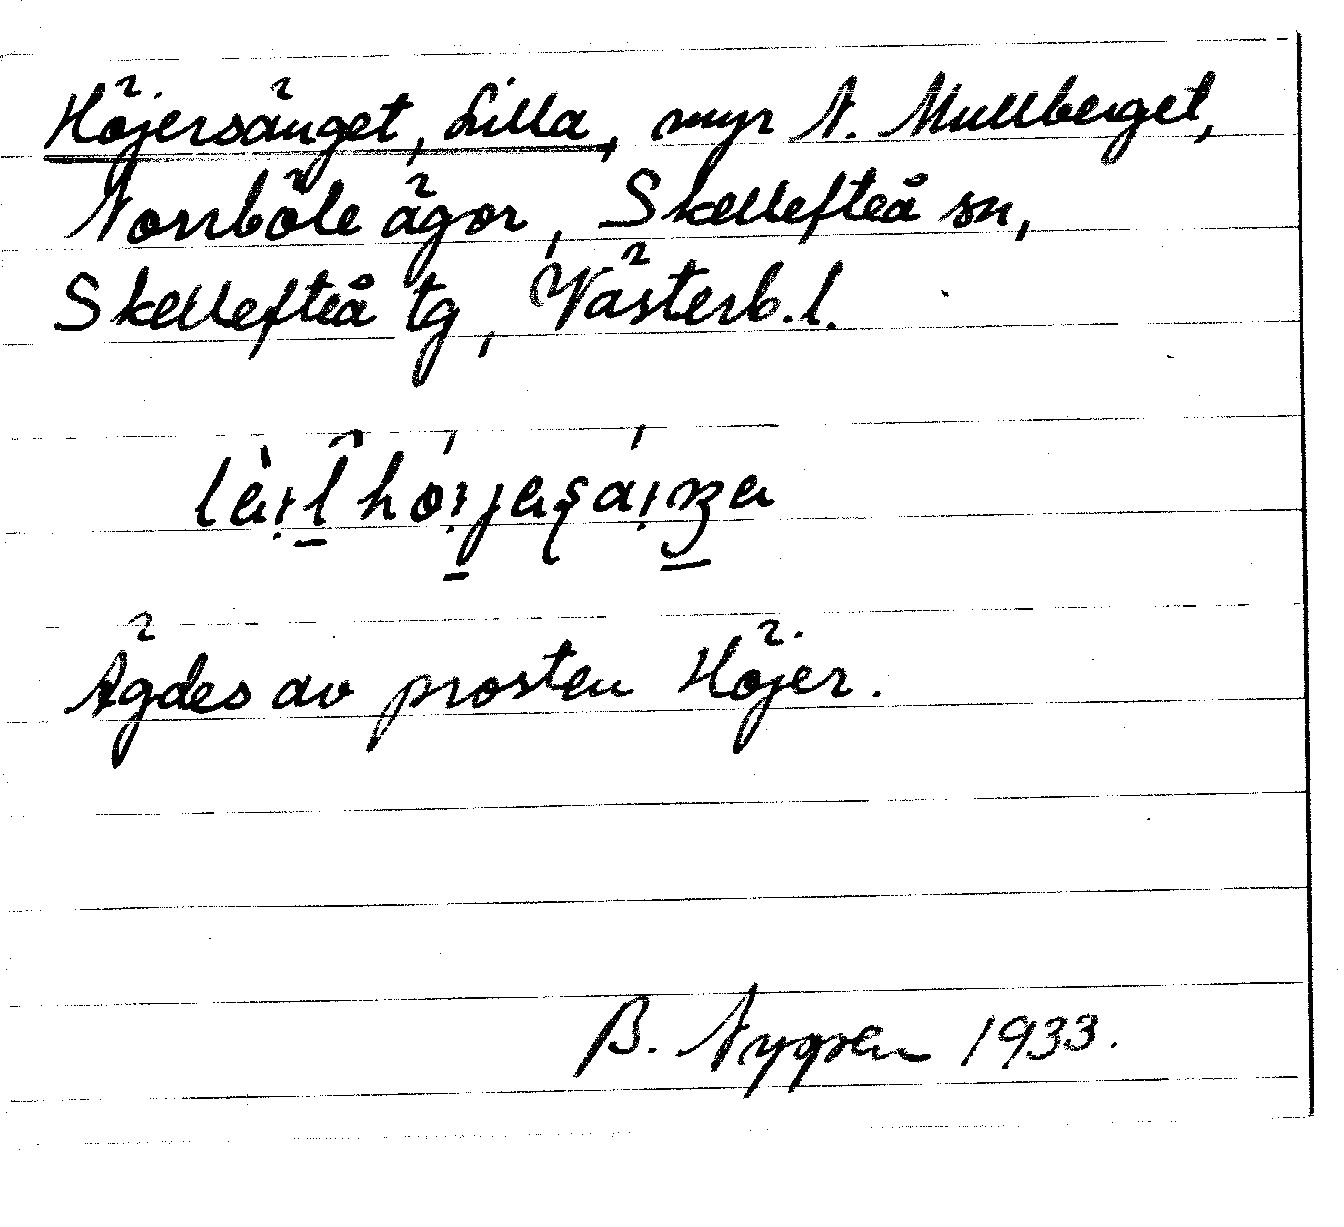 Höjersänget, Lilla, myr N. Mullberget,
Norrböle ägor, Skellefteå sn,
Skellefteå tg, Västerb. l.
Ägdes av prosten Höjer.
B. Nygren 1933.